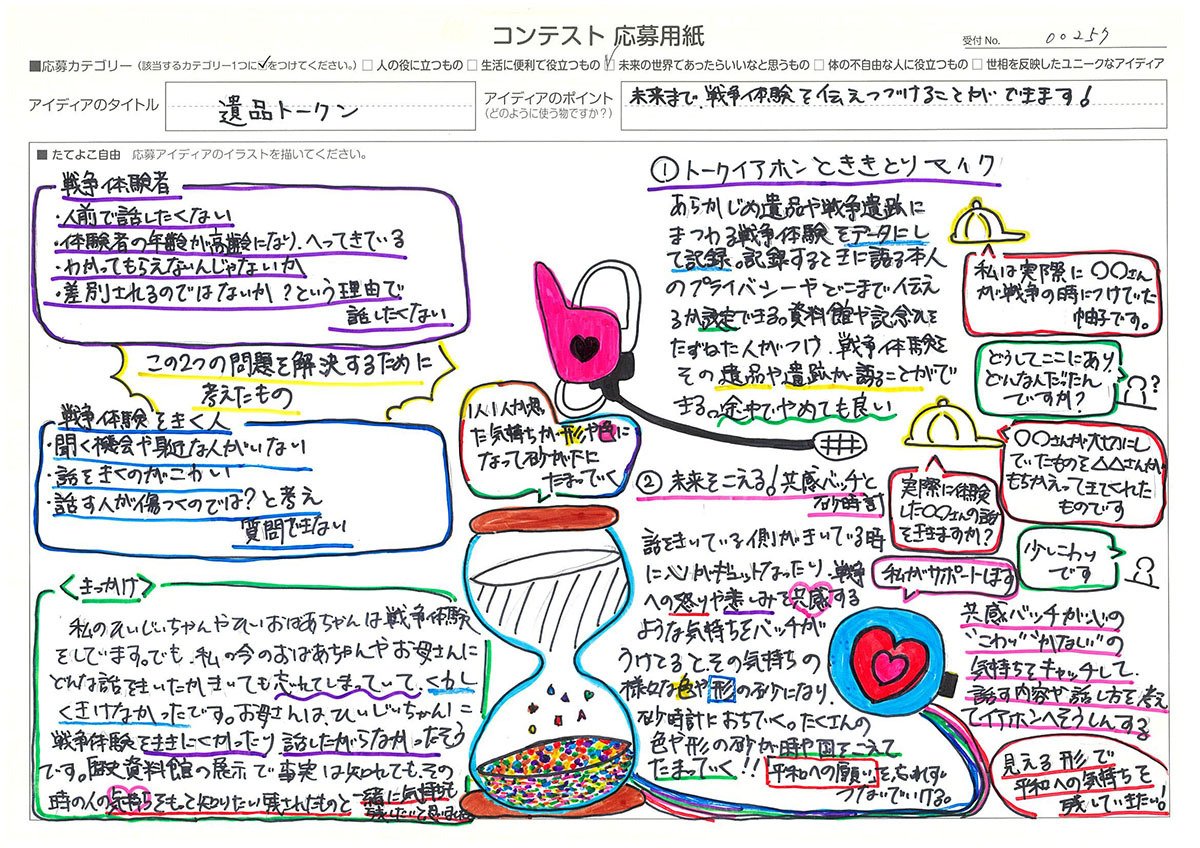 コンテスト 応募用紙
受付 No. 00257
■応募カテゴリー（該当するカテゴリー1つに✓をつけてください。）□ 人の役に立つもの □ 生活に便利で役立つもの ☑ 未来の世界であったらいいなと思うもの □ 体の不自由な人に役立つもの □ 世相を反映したユニークなアイディア
アイディアのタイトル
遺品トークン
アイディアのポイント
（どのように使う物ですか？）
未来まで、戦争体験を伝えつづけることができます！
■ たてよこ自由 応募アイディアのイラストを描いてください。
戦争体験者
・人前で話したくない
・体験者の年齢が高齢になり、へってきている
・わかってもらえないんじゃないか
・差別されるのではないか？という理由で
話したくない
この2つの問題を解決するために
考えたもの
戦争体験をきく人
・聞く機会や身近な人がいない
・話をきくのがこわい
・話す人が傷つくのでは？と考え
質問できない
＜きっかけ＞
私のひいじいちゃんやひいおばあちゃんは戦争体験
をしています。でも、私の今のおばあちゃんやお母さんに
どんな話をきいたかきいても忘れてしまっていて、くわし
くきけなかったです。お母さんは、ひいじいちゃんに
戦争体験をききにくかったり話したがらなかったそう
です。歴史資料館の展示で事実は知れても、その
時の人の気持ちをもって知りたい残されたものと一緒に気持ちも
残したいと思いました
1人1人が思っ
た気持ちが形や色に
なって砂がたに
たまっていく
① トークイアホンとききとりマイク
あらかじめ遺品や戦争遺跡に
まつわる戦争体験をデータにし
て記録。記録するときに語る本人
のプライバシーやどこまで伝え
るか設定できる。資料館や記念館を
たずねた人がつけ、戦争体験を
その遺品や遺跡が語ることがで
きる。途中でやめても良い
私は実際に〇〇さん
が戦争の時につけていた
帽子です。
どうしてここにあり、
どんな人だったん
ですか？
？
〇〇さんが大切にし
ていたものを△△さんが
もちかえってきてくれた
ものです
実際に体験
した〇〇さんの話
をききますか？
少しこわい
です
私がサポートします
② 未来をこえる！共感バッチと
砂時計
話をきいている側がきいている時
に心がギュッとなったり、戦争
への怒りや悲しみを共感する
ような気持ちをバッチが
うけてると、その気持ちの
様々な色や形の砂になり、
砂時計におちていく。たくさんの
色や形の砂が時や国をこえて
たまっていく！！
平和への願いをわすれず
つないでいける。
共感バッチが心の
“こわい”“かなしい”の
気持ちをキャッチして、
話す内容や話し方を考え
てイアホンへそうしんする
見える形で
平和への気持ちを
残していきたい！